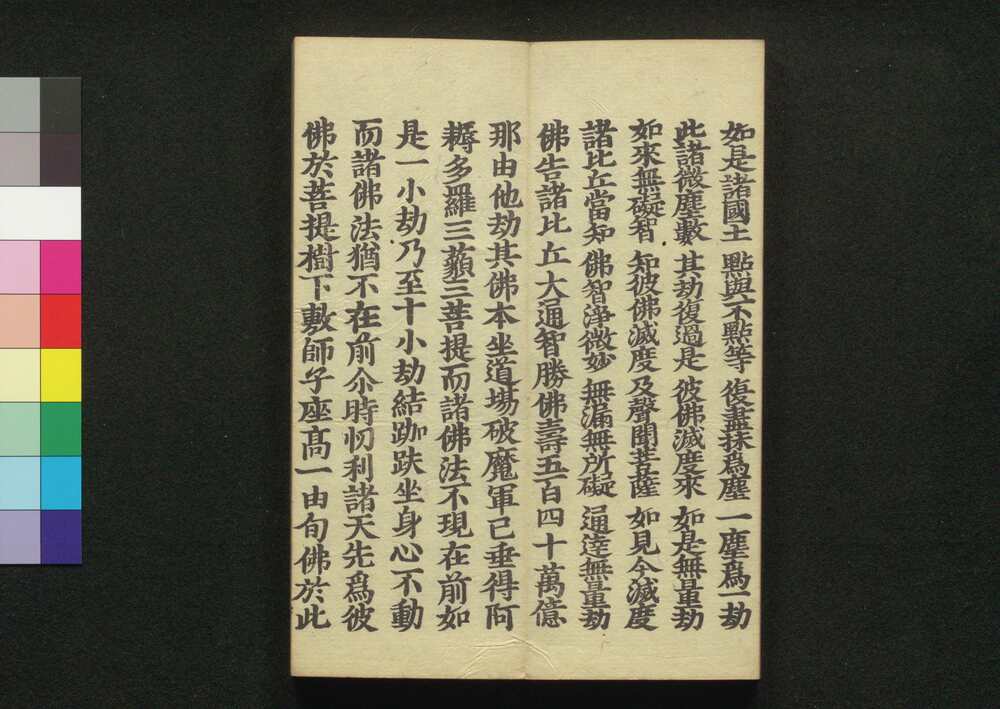 如是諸國土 點與不點等 復盡抹爲塵 一塵爲一劫
此諸微塵數 其劫復過是 彼佛滅度來 如是無量劫
如來無礙智 知彼佛滅度 及聲聞菩薩 如見今滅度
諸比丘當知 佛智淨微妙 無漏無所礙 通達無量劫
佛告諸比丘大通智勝佛壽五百四十萬億
那由他劫其佛本坐道場破魔軍已垂得阿
耨多羅三藐三菩提而諸佛法不現在前如
是一小劫乃至十小劫結跏趺坐身心不動
而諸佛法猶不在前尒時忉利諸天先爲彼
佛於菩提樹下敷師子座高一由旬佛於此